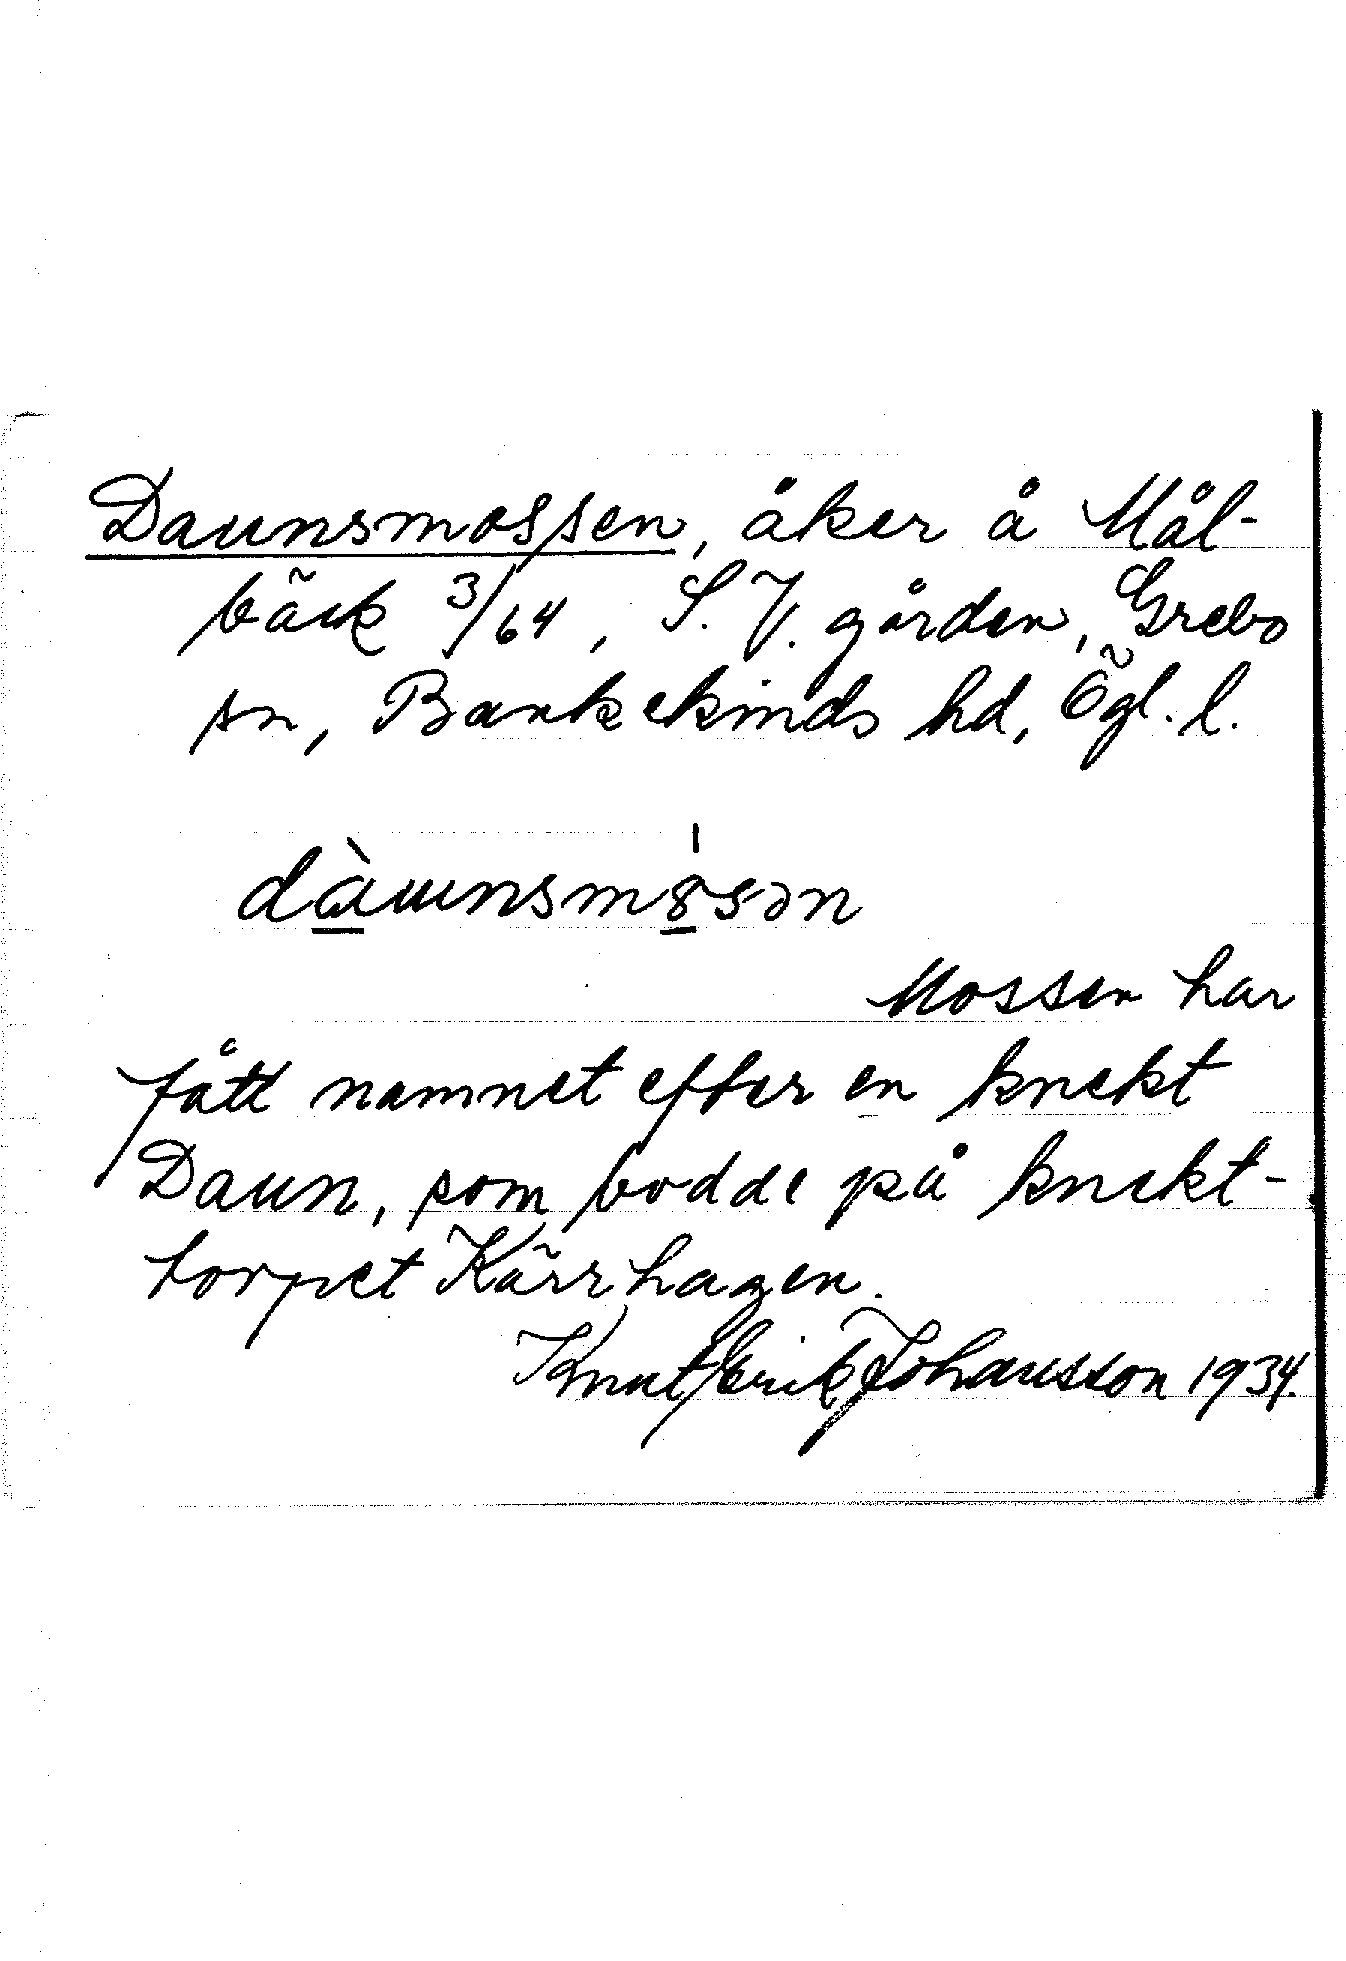 Daunsmossen, åker å Mål-
bäck 3/64, S. V. gården, Grebo
sn, Bankekinds hd, Ögl. l.
dàunsmȯsən
Mossen har
fått namnet efter en knekt
Daun, som bodde på knekt-
torpet Kärrhagen.
Knut Erik Johansson 1934.